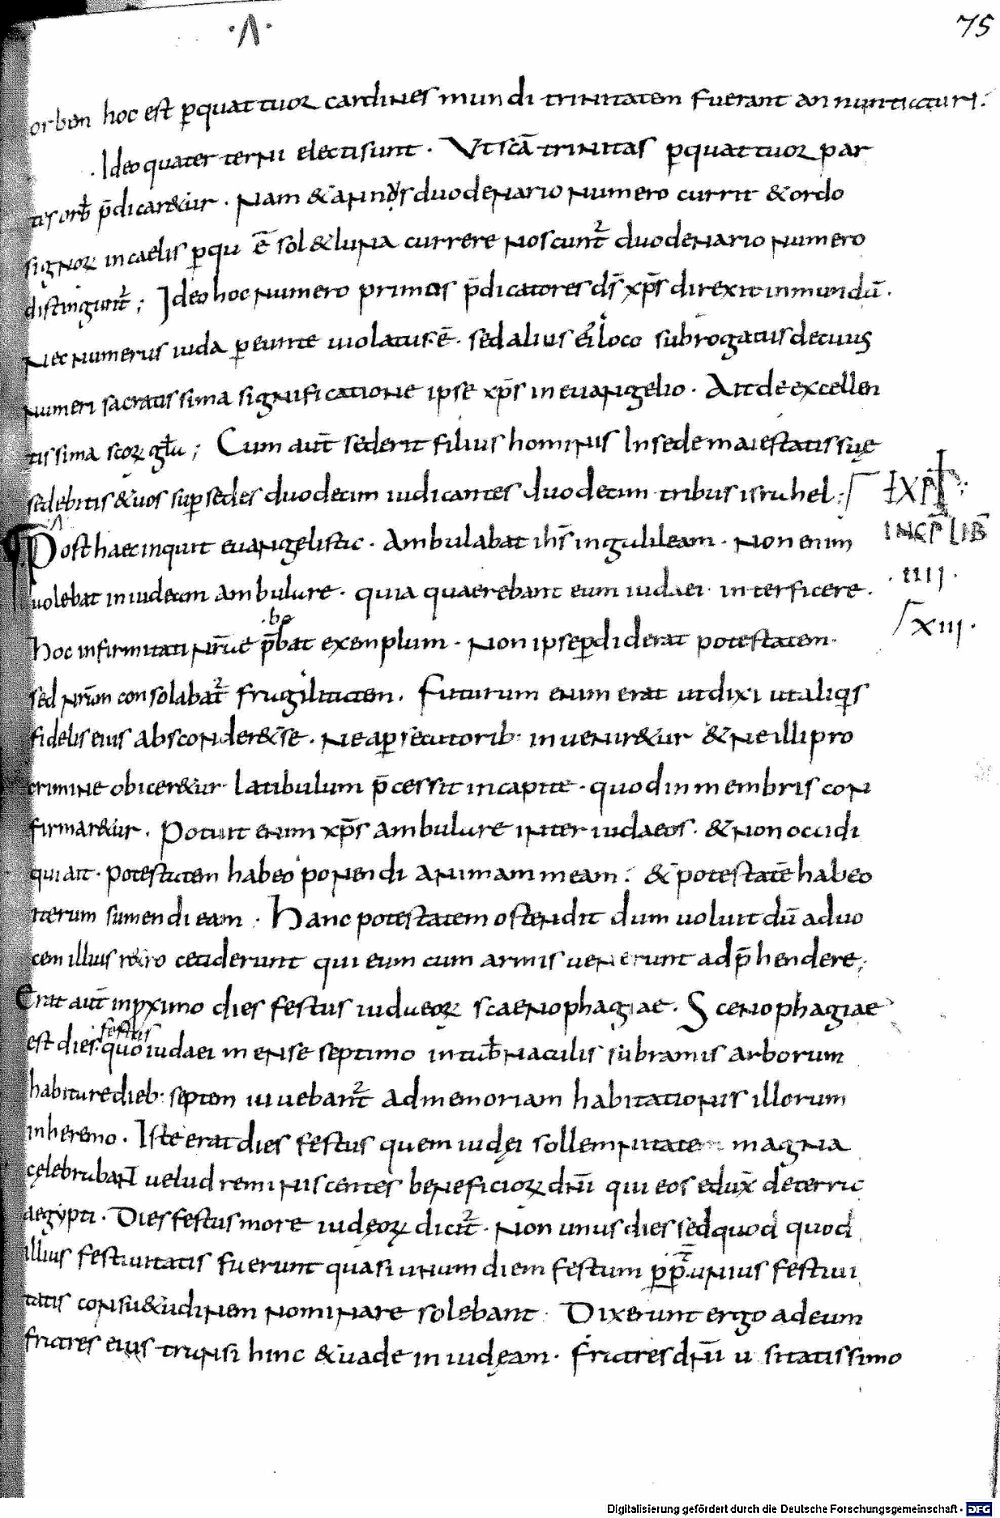 ·Λ·
75
orbem hoc est p̄quattuor cardines mundi trinitatem fuerant annuntiaturi.
·Ideo quater terni electi sunt · Ut scā trinitas p̄quattuor par
tis orb̄ p̄dicar&ur · Nam & annus duodenario numero currit & ordo
signoꝝ in caelis p̄ qu ē sol & luna currere noscunt᷑ duodenario numero
distingunt᷑; Ideo hoc numero primos p̄dicatores dn̄s xp̄s direxit in mundū ·
Nec numerus iuda p̄eunte uiolatus ē · sed alius ei loco subrogatus decuius
numeri sacratissima significatione ipse xp̄s in euangelio · Ait de excellen
tissima scoꝝ gła; Cum aut̄ sederit filius hominis In sede maiestatis suę
sedebitis & uos sup̄ sedes duodecim iudicantes duodecim tribus israhel:
EXP̄T:
INCP̄ LIB̄
·IIII·
XIII·
Post haec inquit euangelistic · Ambulabat ih̄s in galileam · Non enim
uolebat in iudeam ambulare · quia quaerebant eum iudaei · interficere ·
·be
hoc infirmitati nr̄ae p̄bat exemplum · Non ipse p̄diderat potestatem
sed nr̄am consolabat᷑ fragilitatem · Futurum enim erat ut dixi ut aliquis
fidelis eius absconder& se · Ne a p̄secutorib: inuenir&ur & ne illi pro
crimine obicer&ur latibulum p̄cessit in capite · quod in membris con
firmar&ur · Potuit enim xp̄s ambulare inter iudaeos · & non occidi
qui ait · potestatem habeo ponendi animam meam: & potestatē habeo
iterum sumendi eam · Hanc potestatem ostendit dum uoluit dū ad uo
cem illius r&ro ceciderunt qui eum cum armis uenerunt adp̄hendere;
Erat aut̄ in p̄ximo dies festus iudaeoꝝ scaenophagiae · Scenophagiae
festus
est dies · quo iudaei mense septimo in tab̄naculis sub ramis arborum
habitare dieb: septem uiuebant᷑ ad memoriam habitationis illorum
in heremo · Iste erat dies festus quem iudęi sollemnitate magna
cęlebrabant uelud reminiscentes beneficioꝝ dn̄i qui eos eduxit de terra
aegypti · Dies festus more iudęoꝝ dicit᷑ · Non unus dies sed quod quod
illius festiuitatis fuerunt quasi unum diem festum p̄p̄ unius festiui
tatis consu&udinem nominare solebant · Dixerunt ergo ad eum
fratres eius transi hinc & uade in iudęam · fratres dn̄i usitatissimo
Digitalisierung gefördert durch die Deutsche Forschungsgemeinschaft - DFG